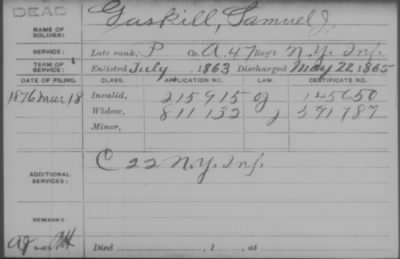 DEAD
NAME OF SOLDIER: Gaskill, Samuel J.
SERVICE: Late rank, P Co. A. 47 Reg't N.Y. Inf.
TERM OF SERVICE: Enlisted July, 1863 Discharged May 22, 1865
DATE OF FILING. CLASS. APPLICATION NO. LAW. CERTIFICATE NO.
1876 Mar 18 Invalid, 215915
Widow, 811132 591787
Minor,
ADDITIONAL SERVICES: C 22 N.Y. Inf.
REMARKS:
Died , 1 , at